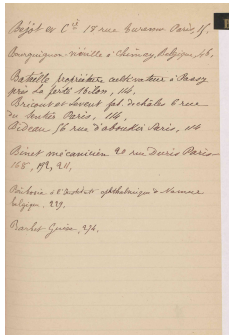 Bejot et Cie 18 rue Turenne Paris, 15.
Bourguignon à Chimay, Belgique, 46,
Bataille propriétaire cultivateur à Passy
près La ferté Milon, 114.
Bricout et Levent fab. de châles 6 rue
du Sentier Paris, 114,
Bideau 56 rue d'aboukir Paris, 114
Binet mécanicien 20 rue Duris Paris
165, 192, 211,
à l'Institut ophthalmique à Namur
Belgique, 229.
Barbet Guise, 274.